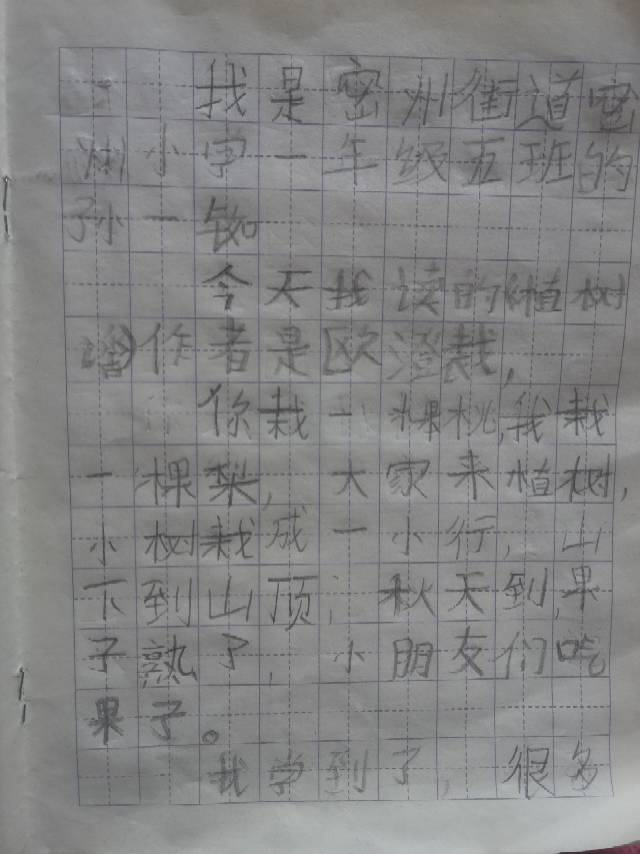 我是密州街道密
州小学一年级五班的
孙一铷
今天我读的《植树
谣》作者是欧澄裁,
你栽一棵桃,我栽
一棵梨,大家来植树,
小树栽成一小行,山
下到山顶,秋天到,果
子熟了,小朋友们吃
果子。
我学到了,很多